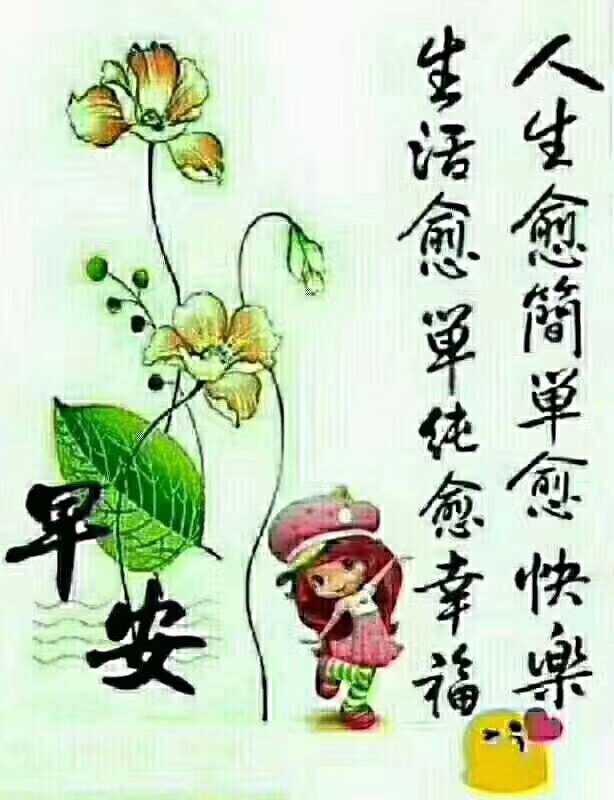 人生愈簡単愈快樂
生活愈単纯愈幸福
早安